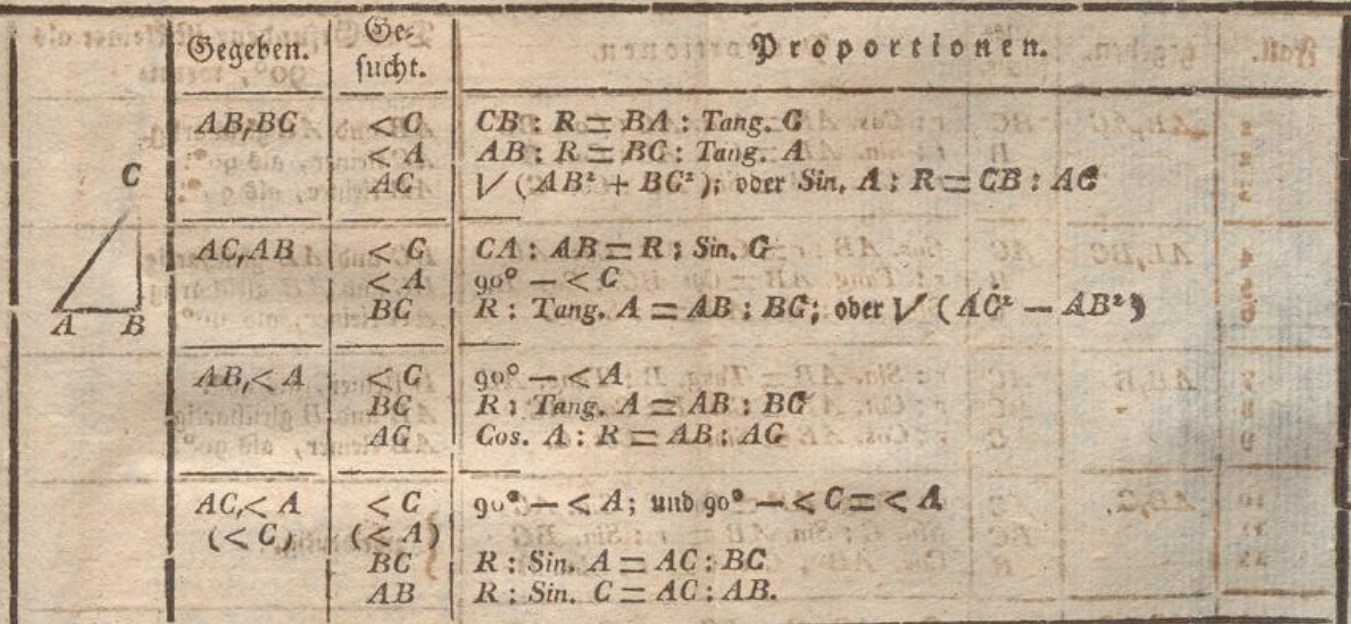 Gegeben. Gesucht. Proportionen.
AB,BC < C CB : R = BA : Tang. C
< A AB : R = BC : Tang. A
AC √ (AB² + BC²); oder Sin. A : R = CB : AC
AC,AB < C CA : AB = R : Sin. C
< A 90° — < C
BC R : Tang. A = AB : BC; oder √ (AC² — AB²)
AB,< A < C 90° — < A
BC R : Tang. A = AB : BC
AC Cos. A : R = AB : AC
AC,< A < C 90° — < A; und 90° — < C = < A
(< C) (< A)
BC R : Sin. A = AC : BC
AB R : Sin. C = AC : AB.
C
A B